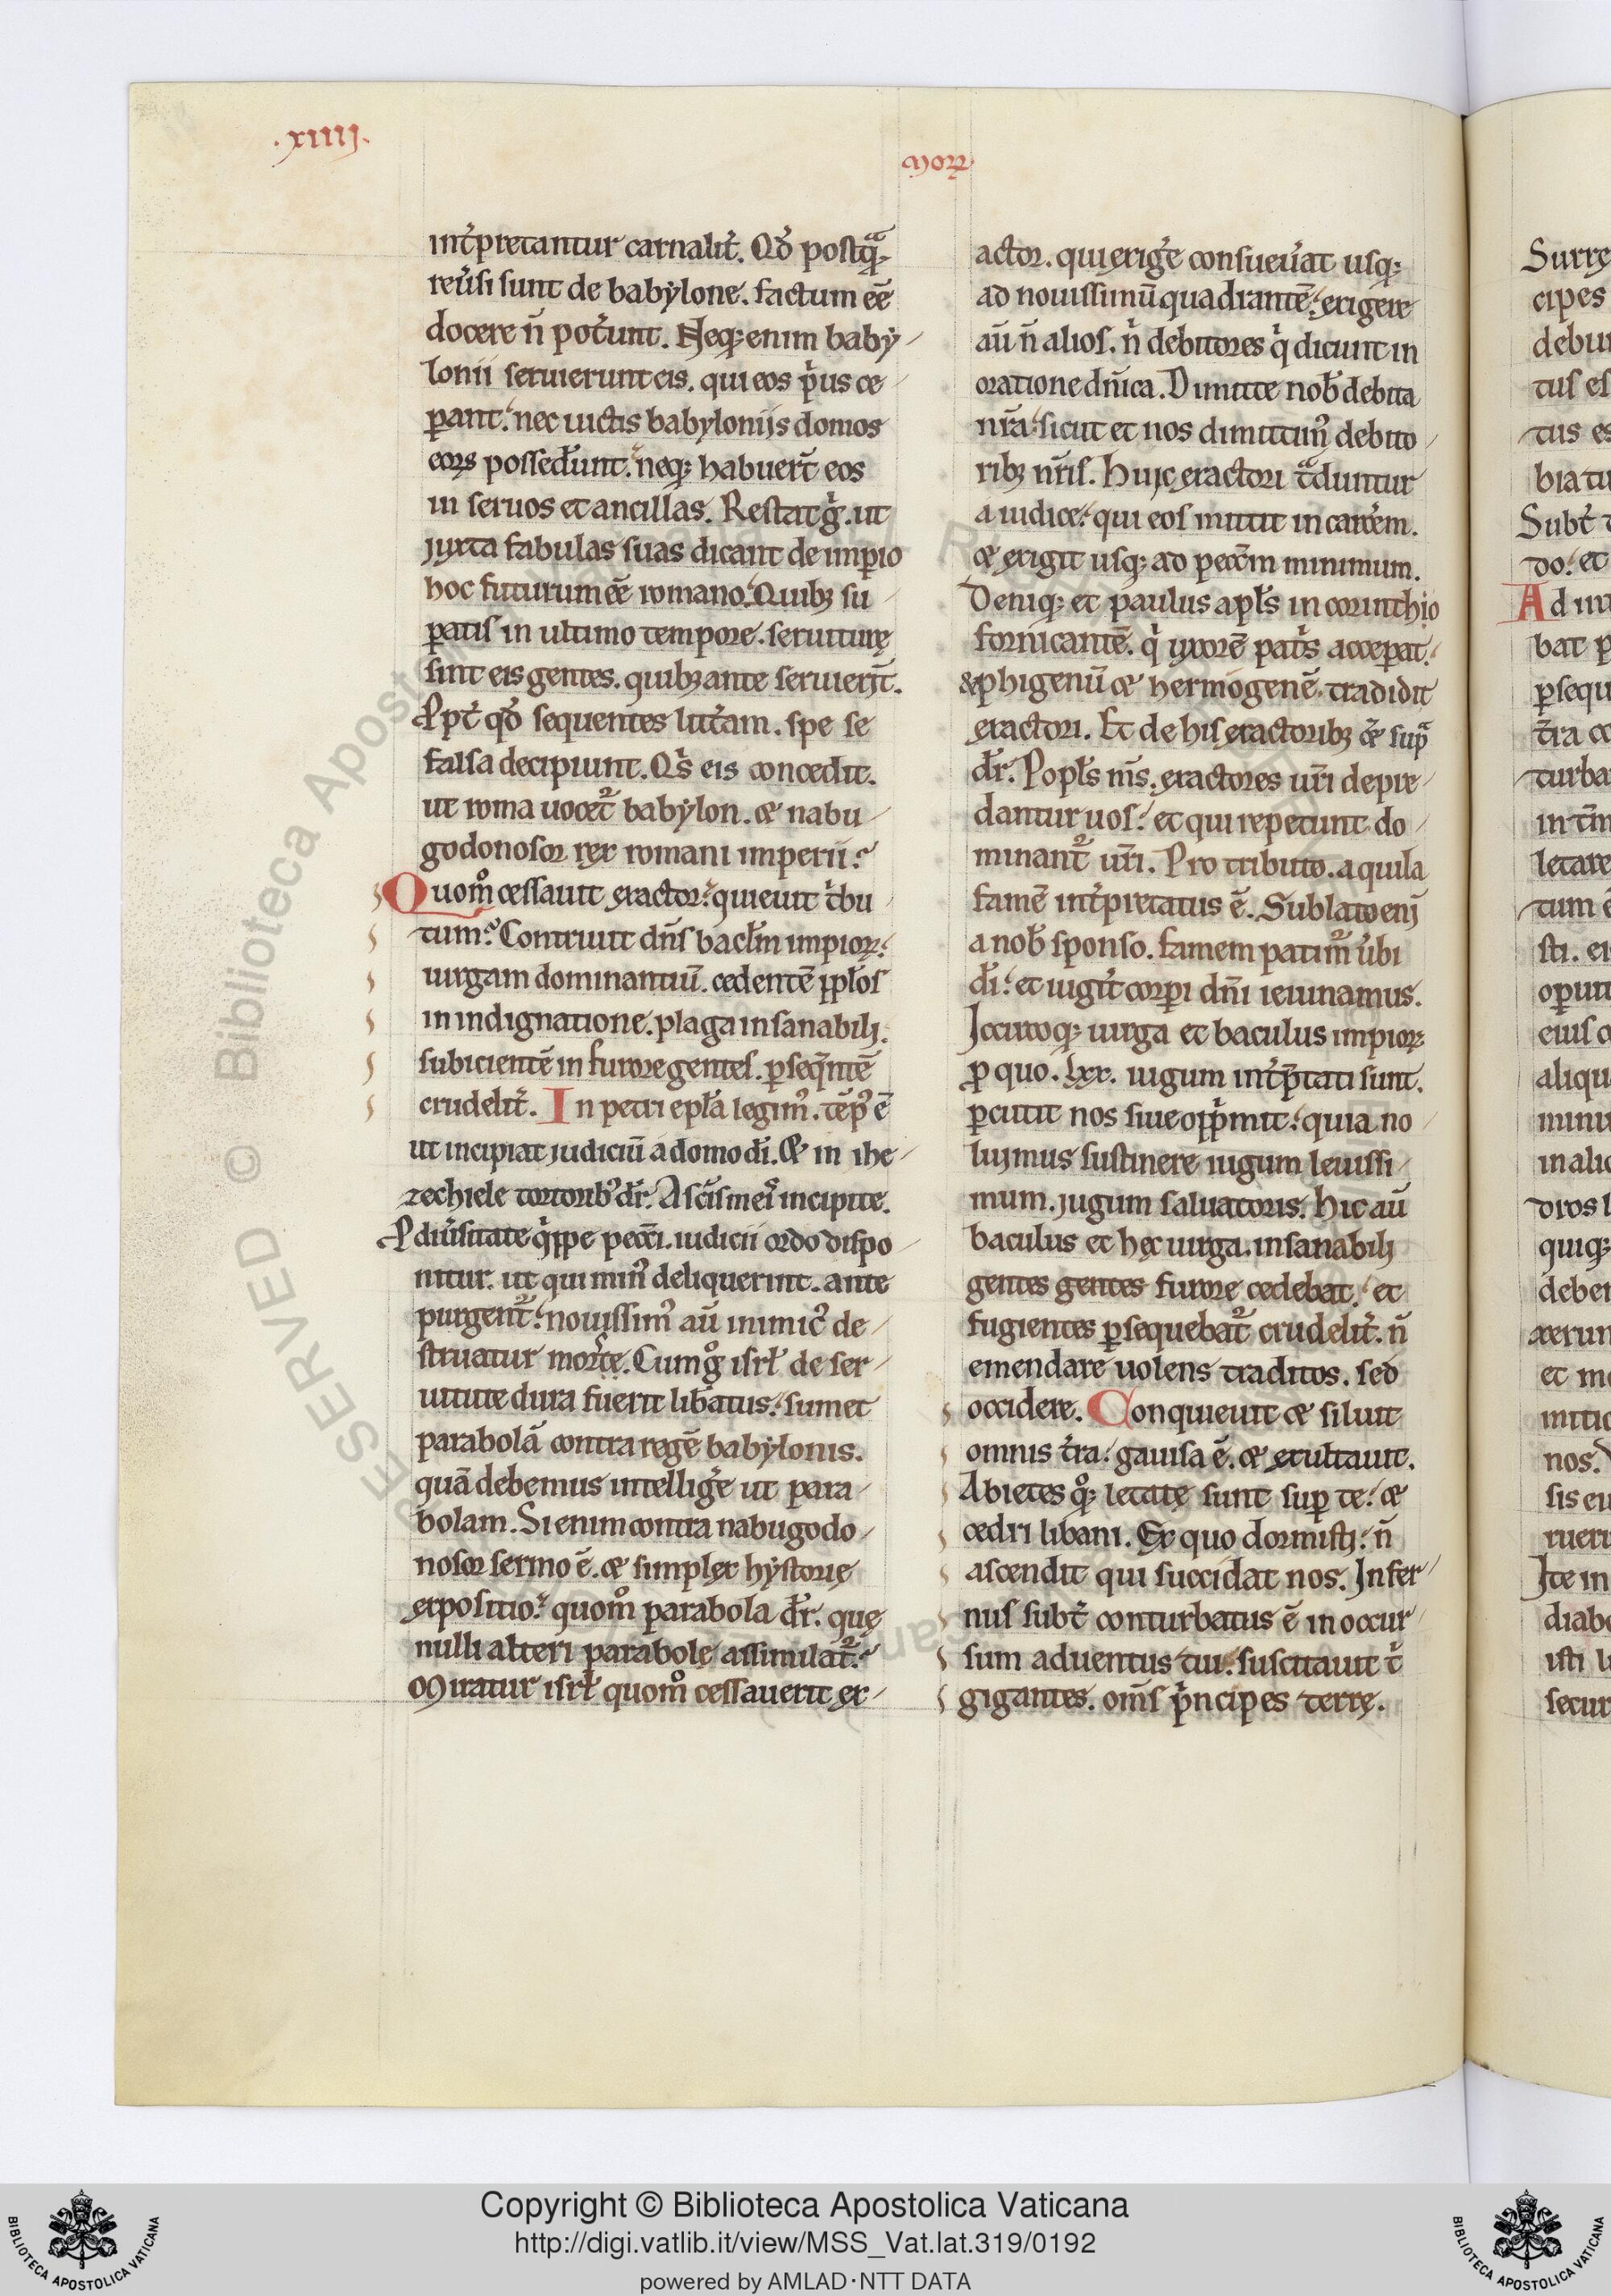 .xiiij.
morꝝ
int̓pretantur carnalit̓. Qď postq̃ᵃ
reu̓si sunt de babylone. factum ēē
docere n̄ pot̓unt. Neq; enim baby
lonii seruierunt eis. qui eos p̓us ce
ꝑant: nec uictis babyloniis domos
eoꝝ possed̓unt. neq; habuer̄t eos
in seruos et ancillas. Restat g̓. ut
iuxta fabulas suas dicant de imꝑio
hoc futurum ēē romano. Quibꝫ su
ꝑatis in ultimo tempore. seruiturę
sint eis gentes. quibꝫ ante seruier̄t.
Ꝓpt̓ qď sequentes litt̓am. spe se
falsa decipiunt. Qͥs eis concedit.
ut roma uocet᷑ babylon. & nabu
godonosor rex romani imperii?
Quom̊ cessauit exactor? quieuit t̓bu
tum? Contriuit dn̄s bacl̄m impioꝝ:
uirgam dominantiū. cedentē ppl̄os
in indignatione. plaga insanabili.
subicientē in furore gentes. ꝑseq̄ntē
crudelit̓. In petri epl̄a legim᷒. tēp᷒ ē
ut incipiat iudiciū a domo dī. & in ihe
zechiele tortorib᷒ dr̄. A sc̄is meis incipite.
P diu̓sitate qͥppe pecc̄i. iudicii ordo dispo
nitur. ut qui min᷒ deliquerint. ante
purgent᷑: nouissim᷒ au̅ inimic᷒ de
struatur mors. Cum g̊ isrl̄ de ser
uitute dura fuerit lib̓atus: sumet
parabolā contra regē babylonis.
quā debemus intellig̓e ut para
bolam. Si enim contra nabugodo
nosor sermo ē. & simplex hystorię
expositio: quom̊ parabola dr̄. quę
nulli alteri parabolę assimilat᷑?
Miratur isrl̄ quom̊ cessauerit ex
actor. qui exig̓e consueu̓at usq;
ad nouissimū quadrantē: exigere
au̅ n̄ alios. nͥ debitores qͥ dicunt in
oratione dn̄ica. Dimitte nob̄ debita
nr̄a: sicut et nos dimittim᷒ debito
ribꝫ nr̄is. Huic exactori tᵃduntur
a iudice: qui eos mittit in carc̓em.
& exigit usq; ad pecc̄m minimum.
Deniq; et paulus apl̄s in corinthio
fornicantē. qͥ uxorē patͥs acceꝑat:
& phigenū & hermogenē. tradidit
exactori. Et de his exactoribꝫ & supᵃ
dr̄. Popl̄s m̄s. exactores ur̄i depre
dantur uos: et qui repetunt. do
minant᷑ ur̄i. Pro tributo. aquila
famē int̓pretatus ē. Sublato enī
a nob̄ sponso. famem patim᷑ u̓bi
dī: et iugit̓ corꝑi dn̄i ieiunamus.
Iccircoq; uirga et baculus impioꝝ
ꝓ quo. lxx. iugum int̓p̄tati sunt.
ꝑcutit nos siue opp̓mit: quia no
luimus sustinere iugum leuissi
mum. iugum saluatoris. Hic au̅
baculus et hęc uirga. insanabili
gentes gentes furore cedebat: et
fugientes ꝑsequebat᷑ crudelit̓. n̄
emendare uolens traditos. sed
occidere. Conquieuit & siluit
omnis t̓ra: gauisa ē. & exultauit.
Abietes q̊; letatę sunt suꝑ te: &
cedri libani. Ex quo dormisti: n̄
ascendit qui succidat nos. Infer
nus subt̓ conturbatus ē in occur
sum aduentus tui. suscitauit tͥ
gigantes. om̄s p̓ncipes terrę.
Surre
cipes
debu
tus es
tus es
bia tu
Subt̓
do: et
Ad in
bat p
ꝑsequ
turba
letare
sti. ei
oꝑuit
eius
aliqu
minu
in ali
dros l
quiq;
debe
xerun
et m
initi
nos.
sis eu
ruer
Ite in
diabo
isti
secur
RESERVED © Biblioteca Apostolica
Copyright © Biblioteca Apostolica Vaticana
http://digi.vatlib.it/view/MSS_Vat.lat.319/0192
powered by AMLAD·NTT DATA
BIBLIOTECA APOSTOLICA VATICANA
BIBLIOTECA APOSTOLICA VATICANA